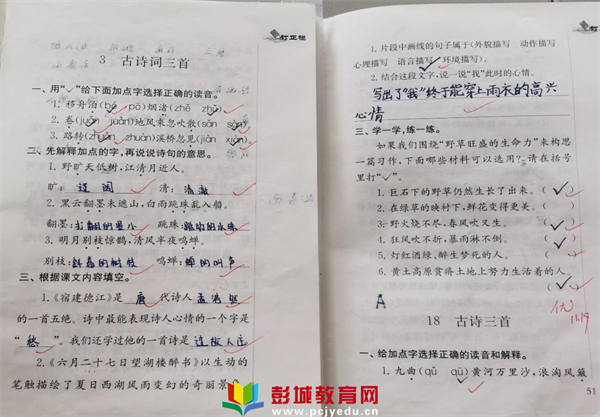 订正栏
3 古诗词三首
一、用“✓”给下面加点字选择正确的读音。
1. 移舟泊(bó pō)烟渚(zhě zhǔ)
2. 卷(juǎn juàn)地风来忽吹散(sǎn sàn)
3. 路转(zhuǎn zhuàn)溪桥忽见(jiàn xiàn)
二、先解释加点的字,再说说诗句的意思。
1. 野旷天低树,江清月近人。
旷: 清: 清澈
2. 黑云翻墨未遮山,白雨跳珠乱入船。
翻墨: 跳珠:
3. 明月别枝惊鹊,清风半夜鸣蝉。
别枝: 鸣蝉: 蝉的叫声
三、根据课文内容填空。
1.《宿建德江》是 唐 代诗人 孟浩然
的一首五绝。诗中最能表现诗人心情的一个字是
“ 愁 ”。我们还学过他的一首诗是
2.《六月二十七日望湖楼醉书》以生动的
笔触描绘了夏日西湖风雨变幻的奇丽景
订正栏
1. 片段中画线的句子属于(外貌描写 动作描写
心理描写 语言描写 环境描写)。
2. 结合这段文字,说一说“我”此时的心情。
写出了“我”终于能穿上雨衣的高兴
心情
三、学一学,练一练。
如果我们围绕“野草旺盛的生命力”来构思
一篇习作,下面哪些材料可以选用?请在括号
里打“✓”。
1. 巨石下的野草仍然生长了出来。(✓)
2. 在绿草的映衬下,鲜花变得更美。( )
3. 野火烧不尽,春风吹又生。(✓)
4. 狂风吹不折,暴雨淋不倒。(✓)
5. 灯红酒绿、醉生梦死的人。( )
6. 黄土高原贫瘠土地上努力生活着的人
(✓)
A
优
11.19
18 古诗三首
一、给加点字选择正确的读音和解释。
1. 九曲(qū qǔ)黄河万里沙,浪淘风簸
51
彭城教育网
www.pcjyedu.cn